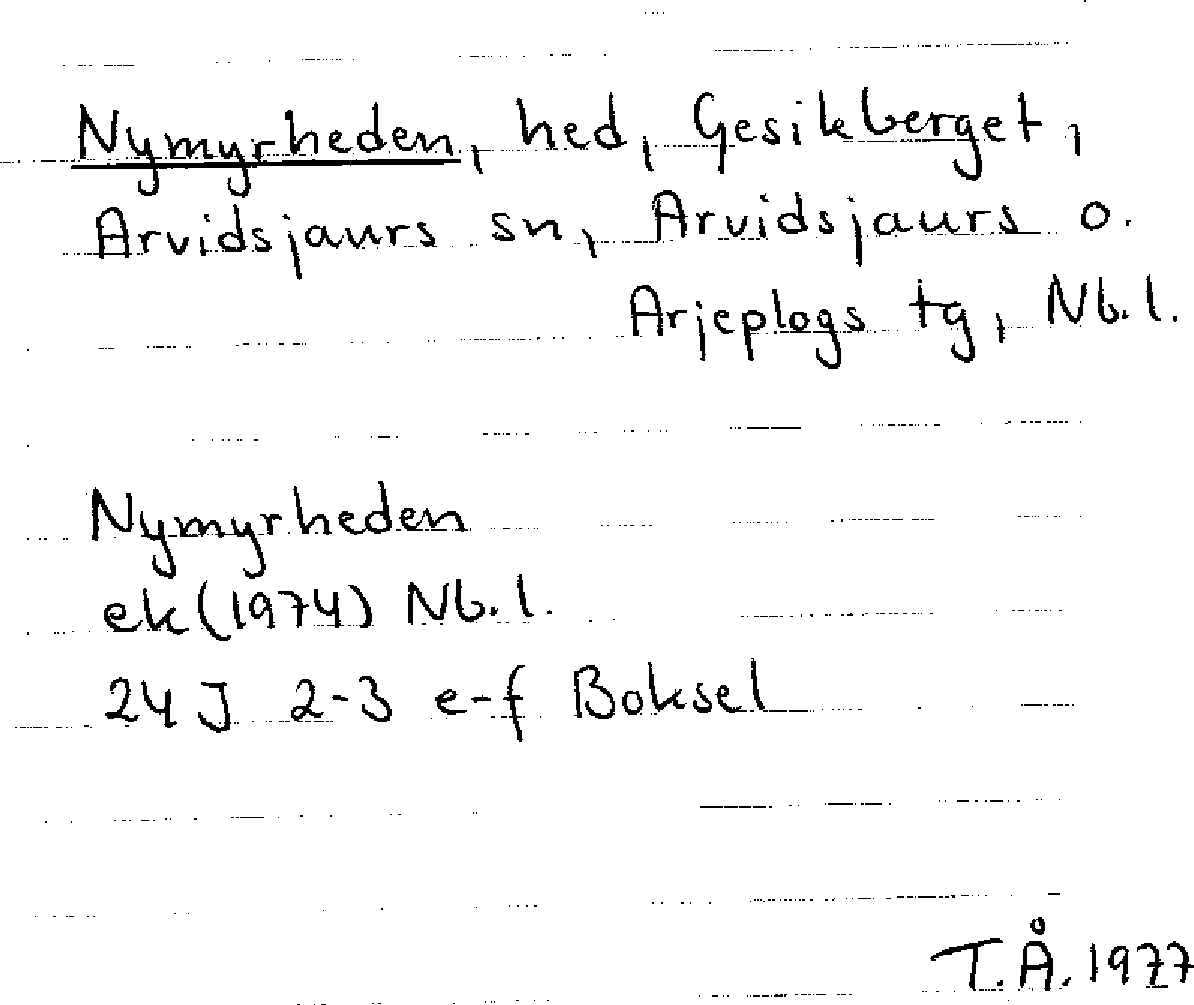 Nymyrheden, hed, Gesikberget,
Arvidsjaurs sn, Arvidsjaurs o.
Arjeplogs tg, Nb.l.
Nymyrheden
ek (1974) Nb.l.
24 J 2-3 e-f Boksel
T.Å. 1977